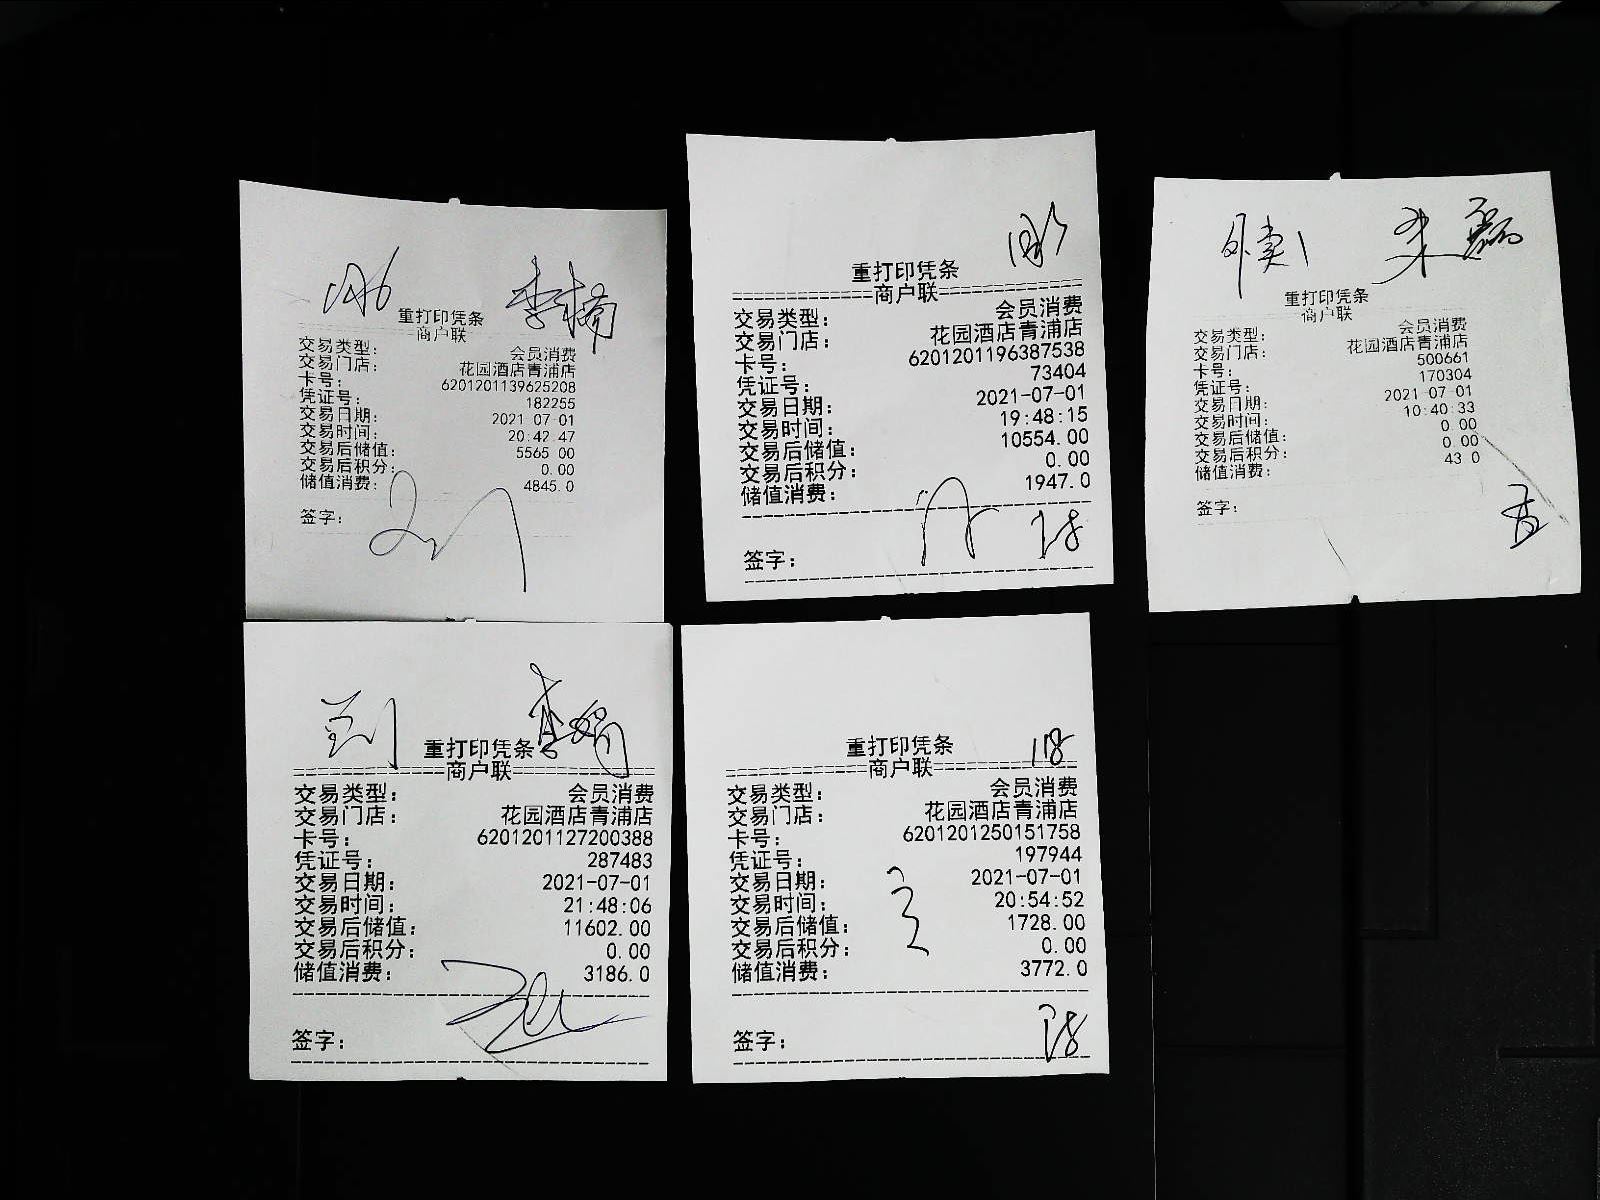 李楠
重打印凭条
商户联
交易类型： 会员消费
交易门店： 花园酒店青浦店
卡号： 6201201139625208
凭证号： 182255
交易日期： 2021-07-01
交易时间： 20:42:47
交易后储值： 5565.00
交易后积分： 0.00
储值消费： 4845.0
签字：
重打印凭条
商户联
交易类型： 会员消费
交易门店： 花园酒店青浦店
卡号： 6201201196387538
凭证号： 73404
交易日期： 2021-07-01
交易时间： 19:48:15
交易后储值： 10554.00
交易后积分： 0.00
储值消费： 1947.0
签字：
外卖1
重打印凭条
商户联
交易类型： 会员消费
交易门店： 花园酒店青浦店
卡号： 500661
凭证号： 170304
交易日期： 2021-07-01
交易时间： 10:40:33
交易后储值： 0.00
交易后积分： 0.00
储值消费： 43.0
签字：
重打印凭条
商户联
交易类型： 会员消费
交易门店： 花园酒店青浦店
卡号： 6201201127200388
凭证号： 287483
交易日期： 2021-07-01
交易时间： 21:48:06
交易后储值： 11602.00
交易后积分： 0.00
储值消费： 3186.0
签字：
118
重打印凭条
商户联
交易类型： 会员消费
交易门店： 花园酒店青浦店
卡号： 6201201250151758
凭证号： 197944
交易日期： 2021-07-01
交易时间： 20:54:52
交易后储值： 1728.00
交易后积分： 0.00
储值消费： 3772.0
签字：